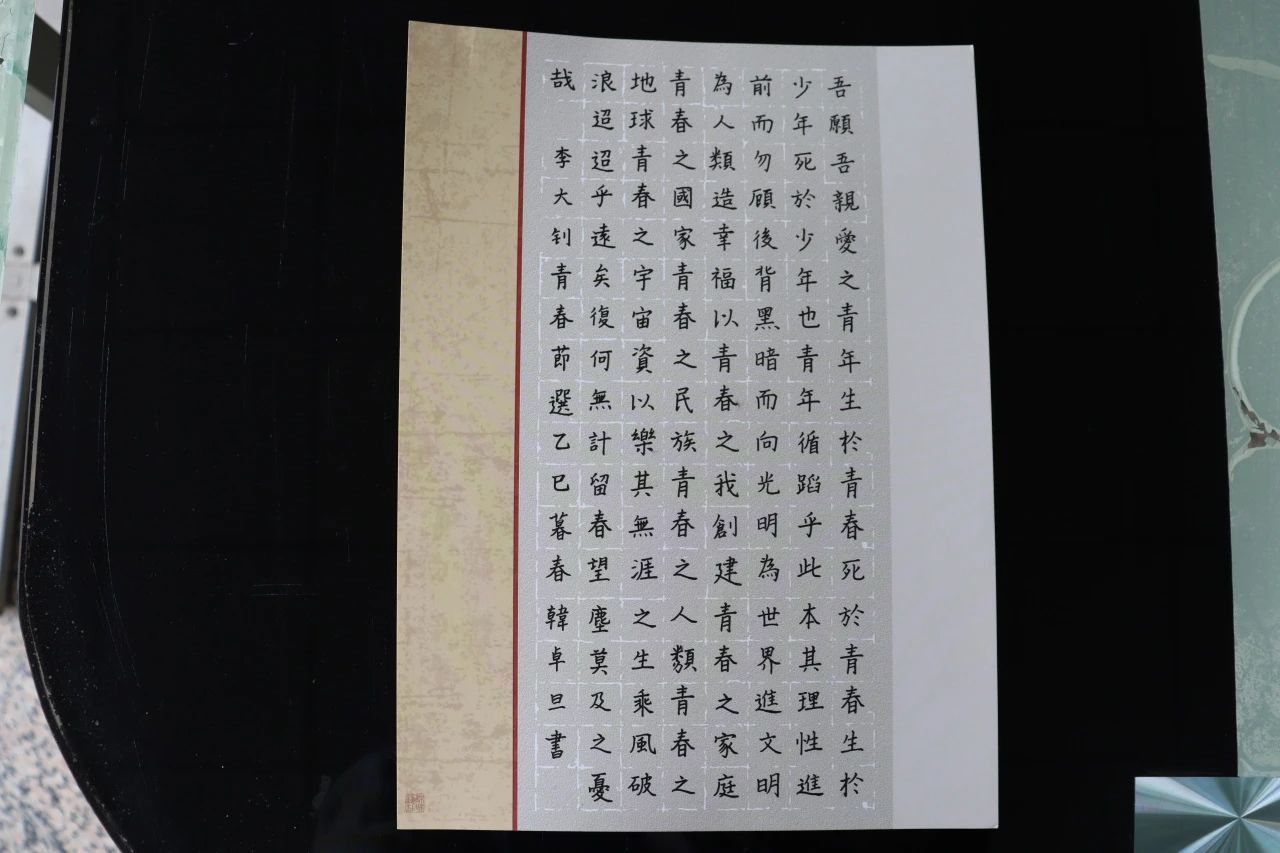 吾願吾親愛之青年生於青春死於青春生於
少年死於少年也青年循蹈乎此本其理性進
前而勿顧後背黑暗而向光明為世界進文明
為人類造幸福以青春之我創建青春之家庭
青春之國家青春之民族青春之人類青春之
地球青春之宇宙資以樂其無涯之生乘風破
浪迢迢乎遠矣復何無計留春望塵莫及之憂
哉 李大钊青春節選乙巳暮春韓卓旦書